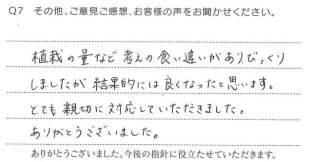 Q7 その他、ご意見ご感想、お客様の声をお聞かせください。
植栽の量など考えの食い違いがありびっくり
しましたが結果的には良くなったと思います。
とても親切に対応していただきました。
ありがとうございました。
ありがとうございました。今後の指針に役立たせていただきます。